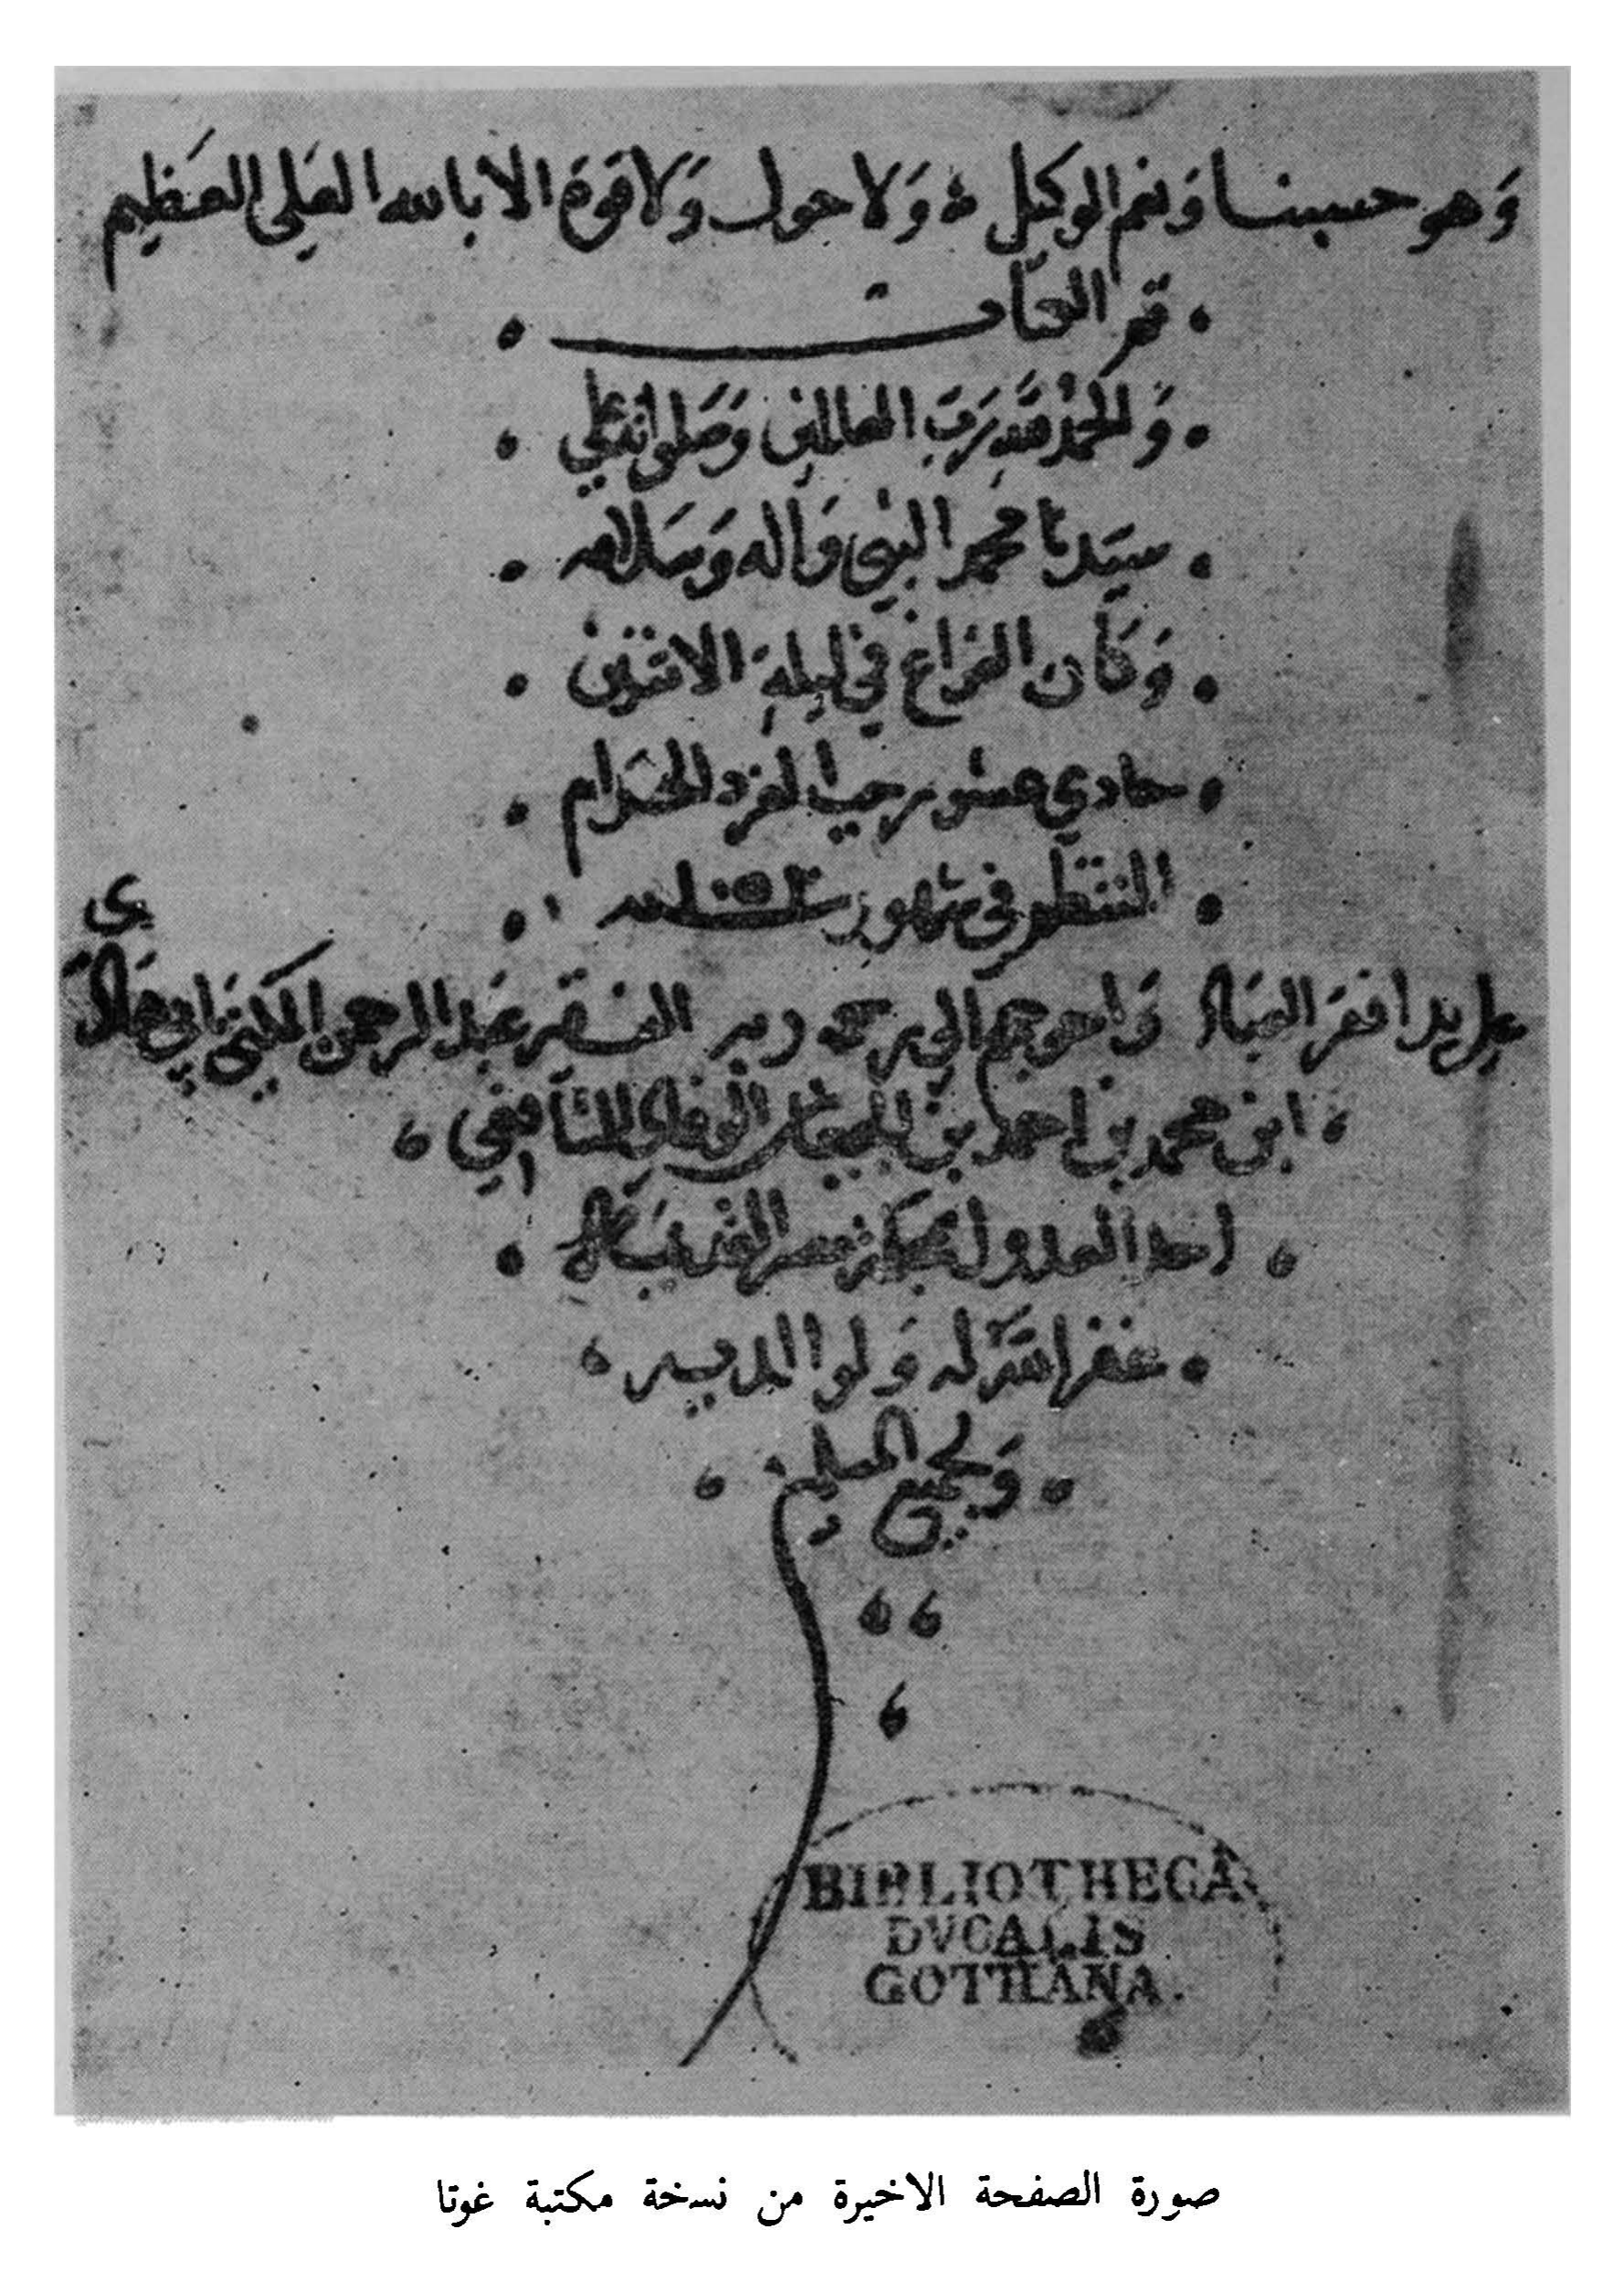 وَهو حسبنا وَنعم الوكيل وَلا حول وَلا قوة الا بالله العَلي العَظيم
تمر الكتاب
وَالحمدُ لله رَبّ العالمين وَصَلواته علي
سيّدنا محمد النبي وَاله وَسَلامه
وَكَان الفراغ في ليلة الاثنين
حادي عشر رجب الفرد الحَرام
المنتظم في شهور سنة
علي يد افقر العبَاد وَاحوجهم الي رحمة ربه الفقير عَبد الرحمن
ابن محمد بن احمد بن الشافعي
احد العدول بمحكمة مصر
غفر الله له وَلوالديه
وَلجميع المسلمين
BIBLIOTHECA
DVCALIS
GOTHANA.
صورة الصفحة الاخيرة من نسخة مكتبة غوتا